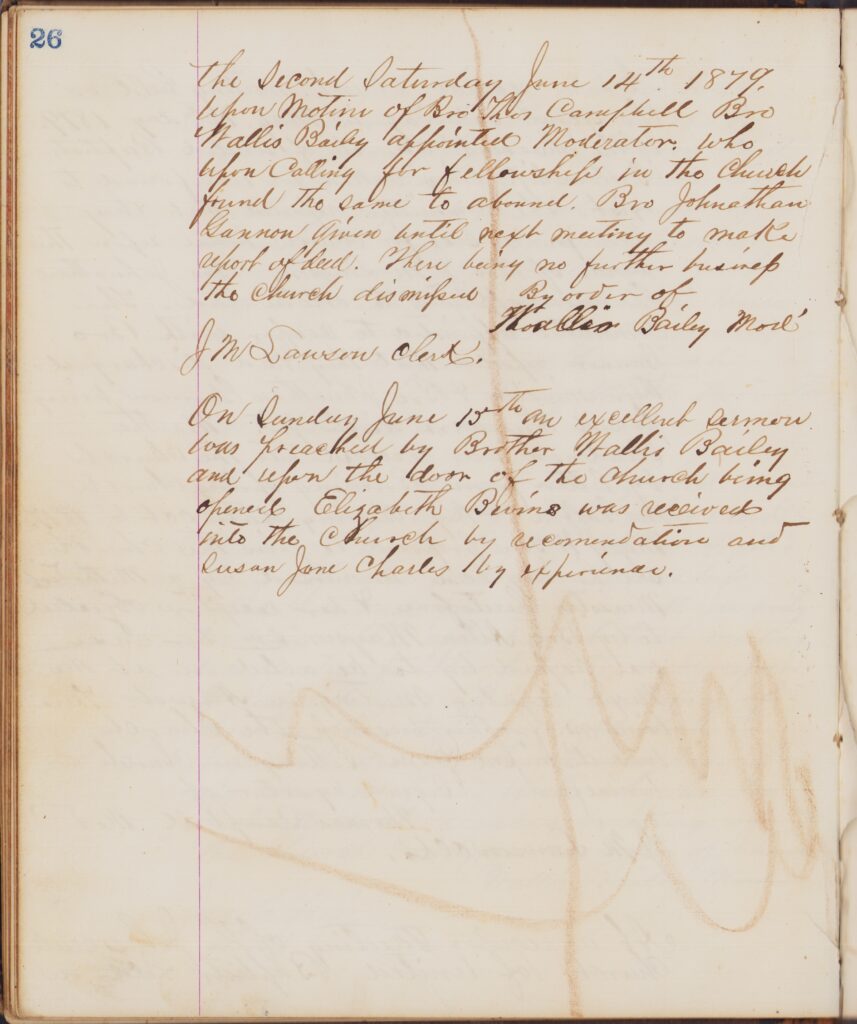 26
the Second Saturday June 14th 1879.
Upon Motion of Bro Thos Campbell Bro
Wallis Bailey appointed Moderator. who
upon Calling for fellowship in the Church
found the same to abound. Bro Johnathan
Gannon given until next meeting to make
report of deed. There being no further business
the Church dismissed By order of
Wallis Bailey Mod
J M Lawson Clerk.
On Sunday June 15th an excellent sermon
was preached by Brother Wallis Bailey
and upon the door of the church being
opened Elizabeth Bivins was received
into the Church by recomendation and
Susan Jane Charles by experience.